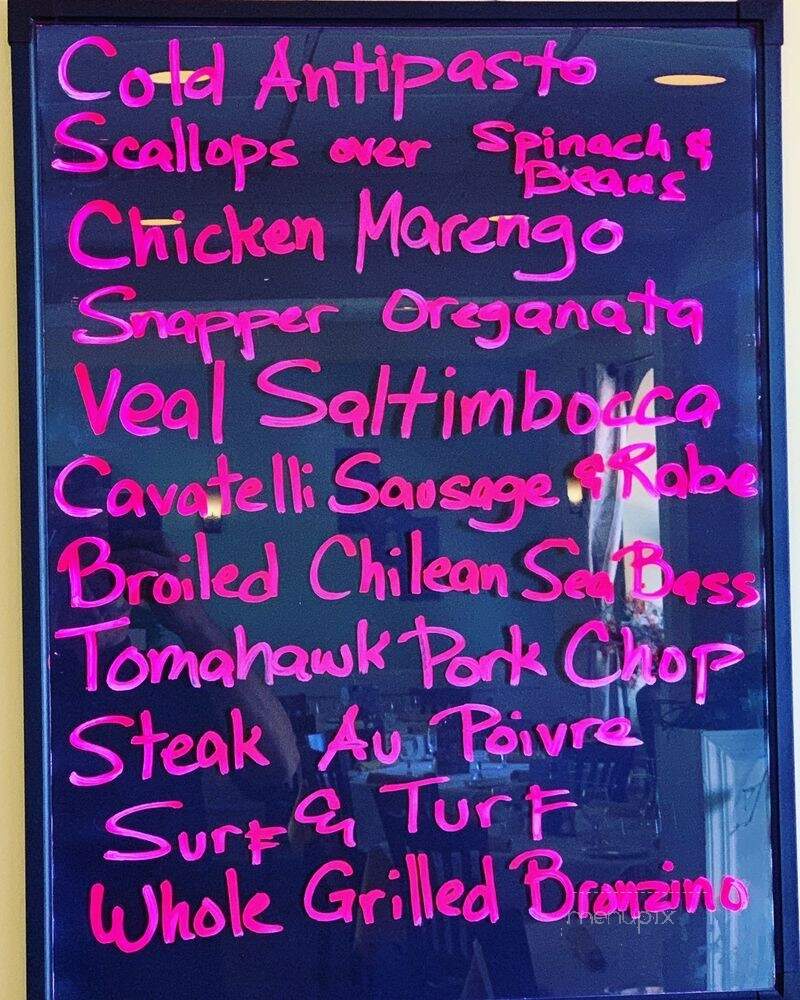 Cold Antipasto
Scallops over Spinach &
Beans
Chicken Marengo
Snapper Oreganata
Veal Saltimbocca
Cavatelli Sausage & Rabe
Broiled Chilean Sea Bass
Tomahawk Pork Chop
Steak Au Poivre
Surf & Turf
Whole Grilled Bronzino
menupix